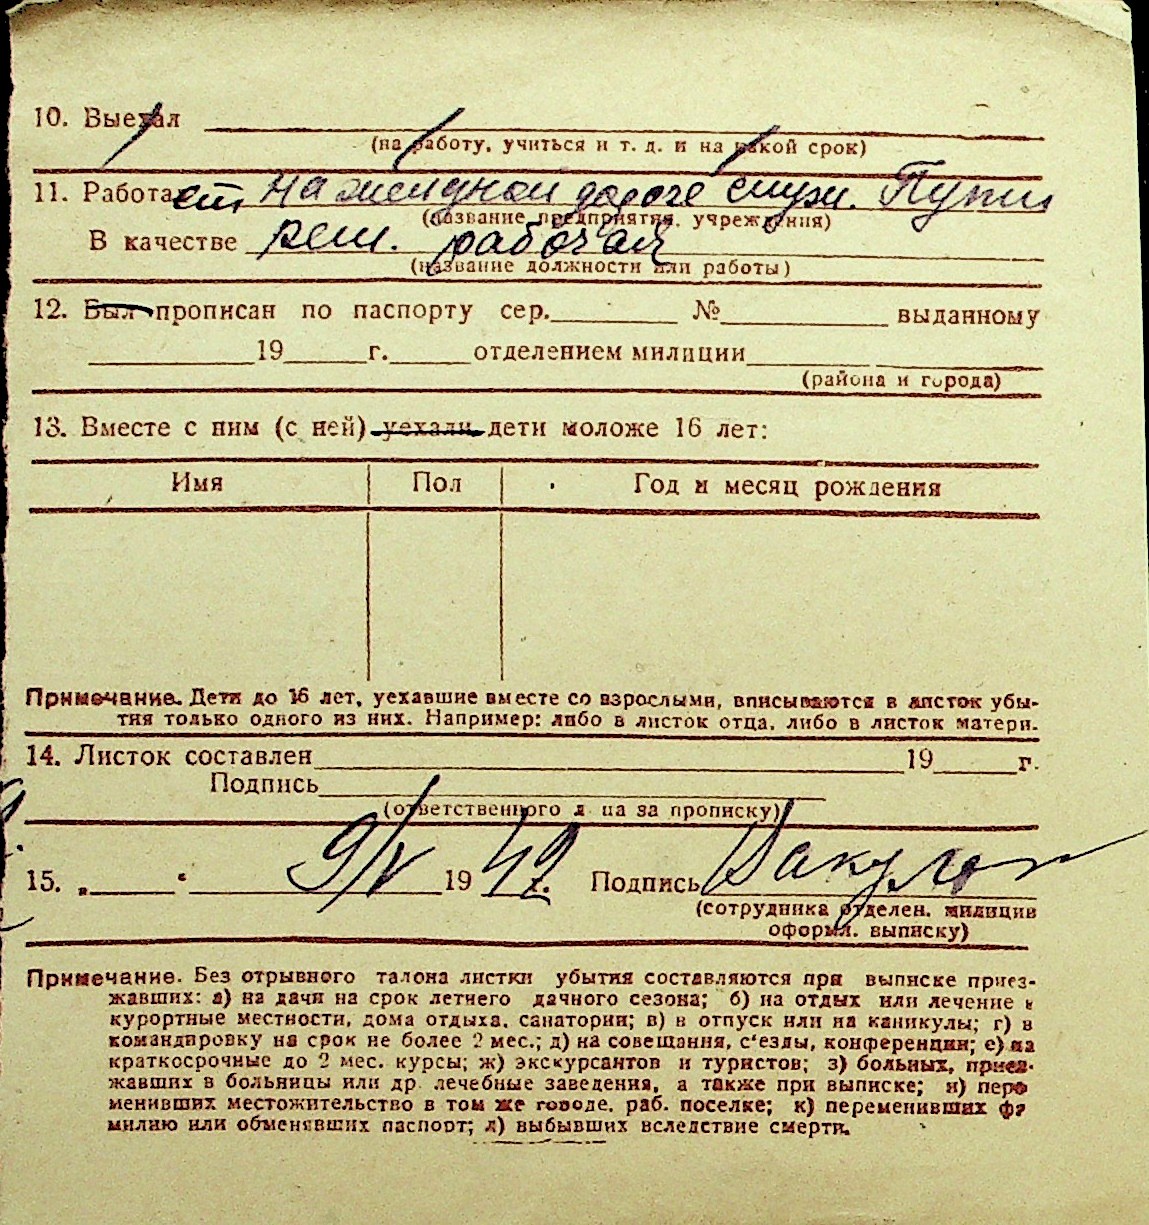 10. Выехал
(на работу, учиться и т. д. и на какой срок)
11. Работает на желдной дороге служ. Пути
(название предприятия, учреждения)
В качестве рем. рабочая
(название должности или работы)
12. Был прописан по паспорту сер. № выданному
19 г. отделением милиции
(района и города)
13. Вместе с ним (с ней) уехали дети моложе 16 лет:
Имя Пол Год и месяц рождения
Примечание. Дети до 16 лет, уехавшие вместе со взрослыми, вписываются в листок убы-
тия только одного из них. Например: либо в листок отца, либо в листок матери.
14. Листок составлен 19 г.
Подпись
(ответственного лица за прописку)
15. „ “ 9/V 1942 г. Подпись
(сотрудника отделен. милиции
оформ. выписку)
Примечание. Без отрывного талона листки убытия составляются при выписке приез-
жавших: а) на дачи на срок летнего дачного сезона; б) на отдых или лечение в
курортные местности, дома отдыха, санатории; в) в отпуск или на каникулы; г) в
командировку на срок не более 2 мес.; д) на совещания, с‘езды, конференции; е) на
краткосрочные до 2 мес. курсы; ж) экскурсантов и туристов; з) больных, приез-
жавших в больницы или др. лечебные заведения, а также при выписке; и) пере
менивших местожительство в том же городе, раб. поселке; к) переменивших фа
милию или обменявших паспорт; л) выбывших вследствие смерти.